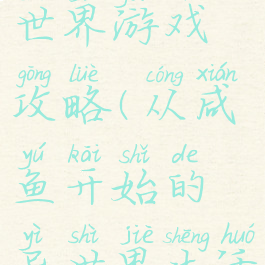 世界游戏
gōng lüè cóng xián
攻略(从咸
yú kāi shǐ de
鱼开始的
yì shì jiè shēng huó
异世界生活